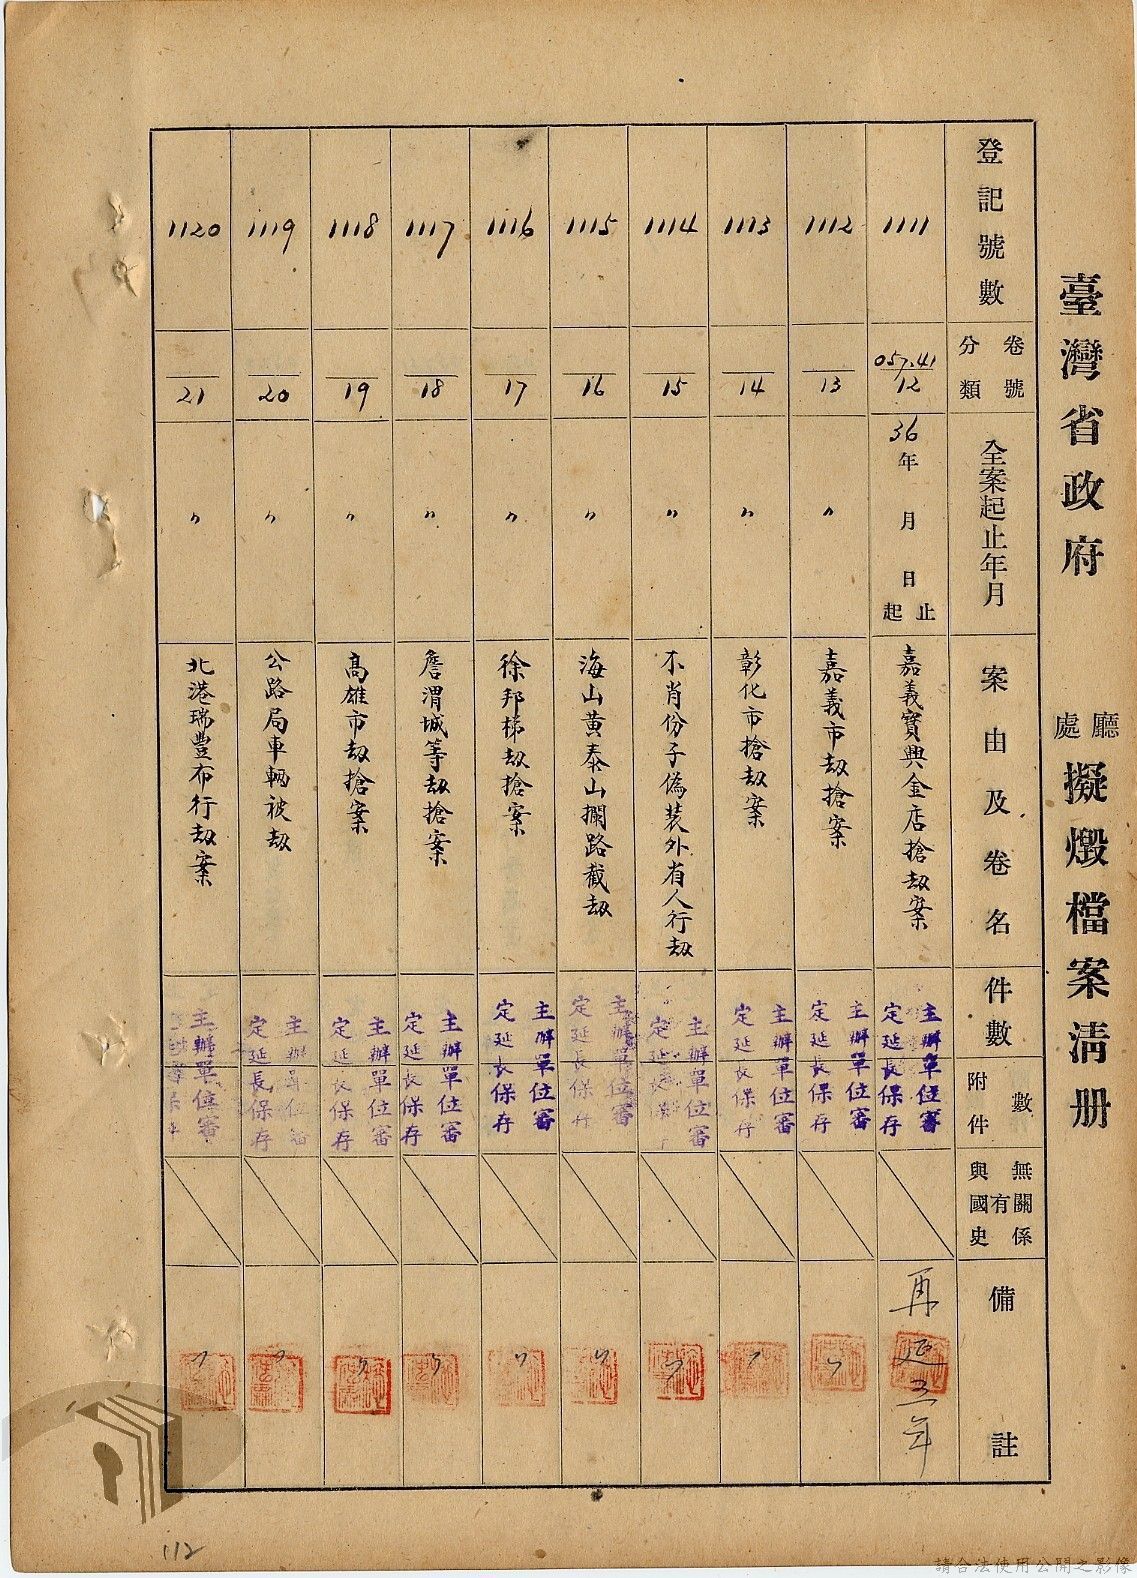 臺灣省政府 廳處 擬燬檔案清册
登記號數
卷號分類
全案起止年月
案由及卷名
件數
附件數
與國史有無關係
備註
1111
057.41
12
36年 月 日起止
嘉義寶興金店搶劫案
主辦單位審
定延長保存
再延 年
1112
13
〃
嘉義市劫搶案
主辦單位審
定延長保存
〃
1113
14
〃
彰化市搶劫案
主辦單位審
定延長保存
〃
1114
15
〃
不肖份子偽装外省人行劫
主辦單位審
定延長保
〃
1115
16
〃
海山黄泰山攔路截劫
主辦單位審
定延長保存
〃
1116
17
〃
徐邦梯劫搶案
主辦單位審
定延長保存
〃
1117
18
〃
詹渭城等劫搶案
主辦單位審
定延長保存
〃
1118
19
〃
高雄市劫搶案
主辦單位審
定延長保存
〃
1119
20
〃
公路局車輛被劫
主辦單位審
定延長保存
〃
1120
21
〃
北港瑞豐布行劫案
主辦單位審
〃
112
請合法使用公開之影像